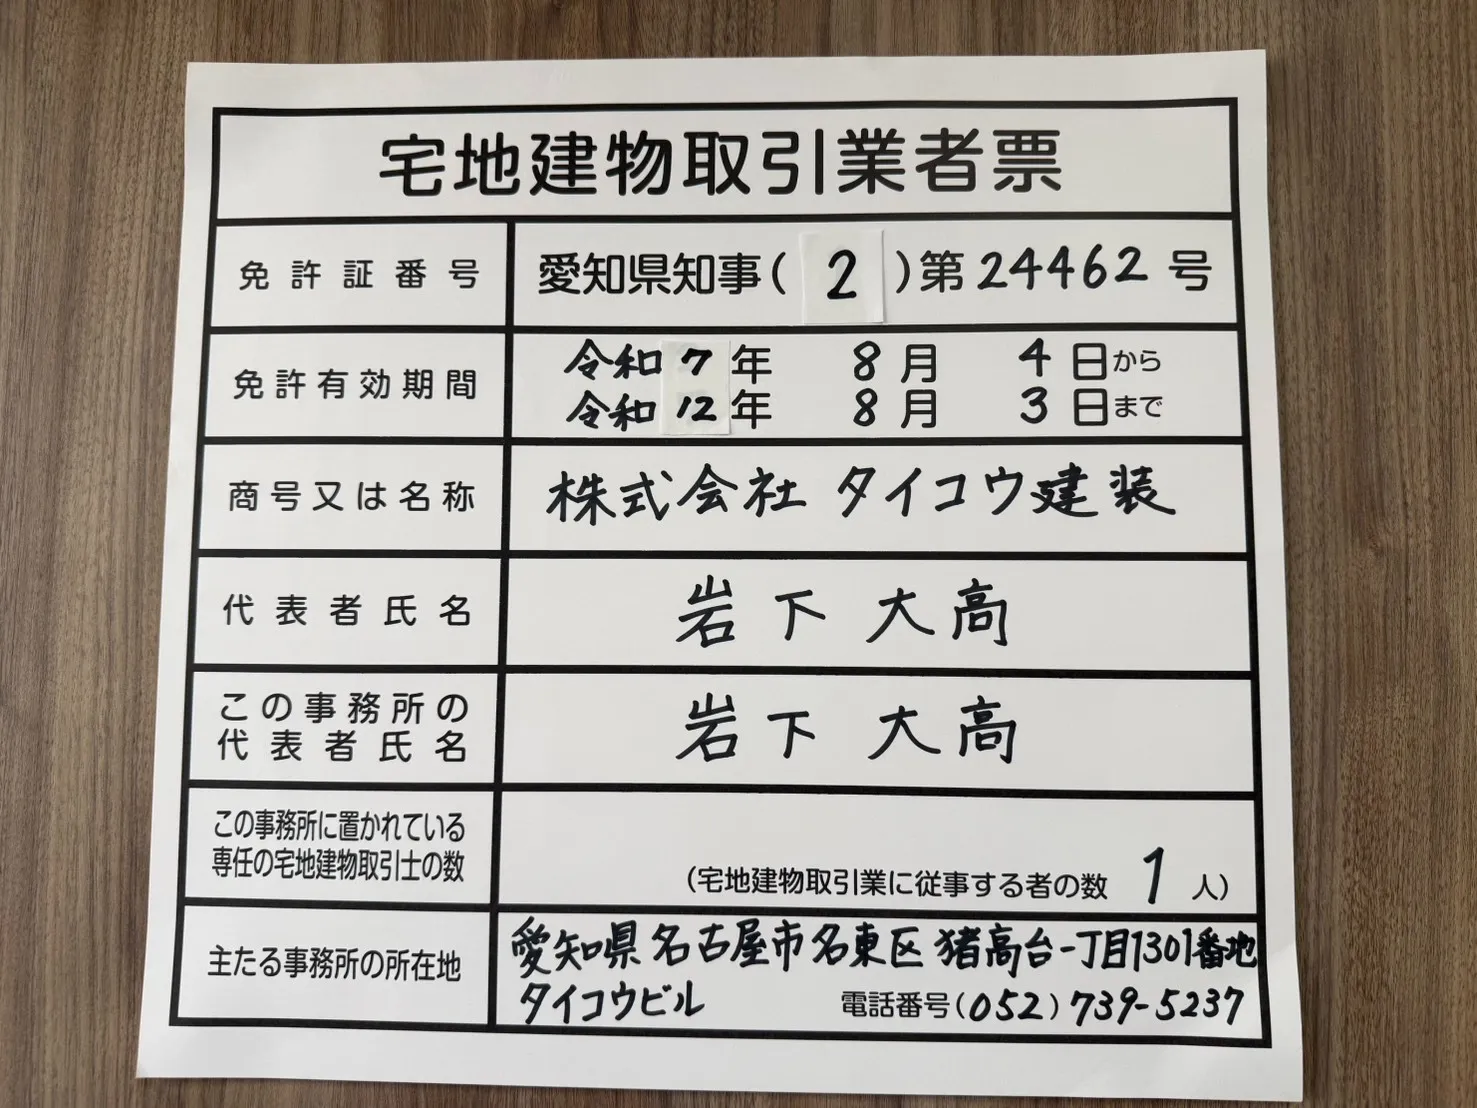 宅地建物取引業者票
免許証番号 愛知県知事(2)第24462号
免許有効期間 令和7年 8月 4日から
令和12年 8月 3日まで
商号又は名称 株式会社 タイコウ建装
代表者氏名 岩下 大高
この事務所の
代表者氏名 岩下 大高
この事務所に置かれている
専任の宅地建物取引士の数
(宅地建物取引業に従事する者の数 1人)
主たる事務所の所在地 愛知県名古屋市名東区猪高台一丁目1301番地
タイコウビル 電話番号(052)739-5237